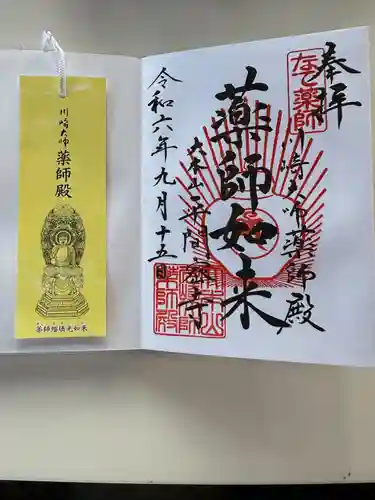 奉拝
なで薬師
川崎大師薬師殿
薬師如来
大本山平間寺
令和六年九月十五日
川崎大師
薬師殿
薬師瑠璃光如来